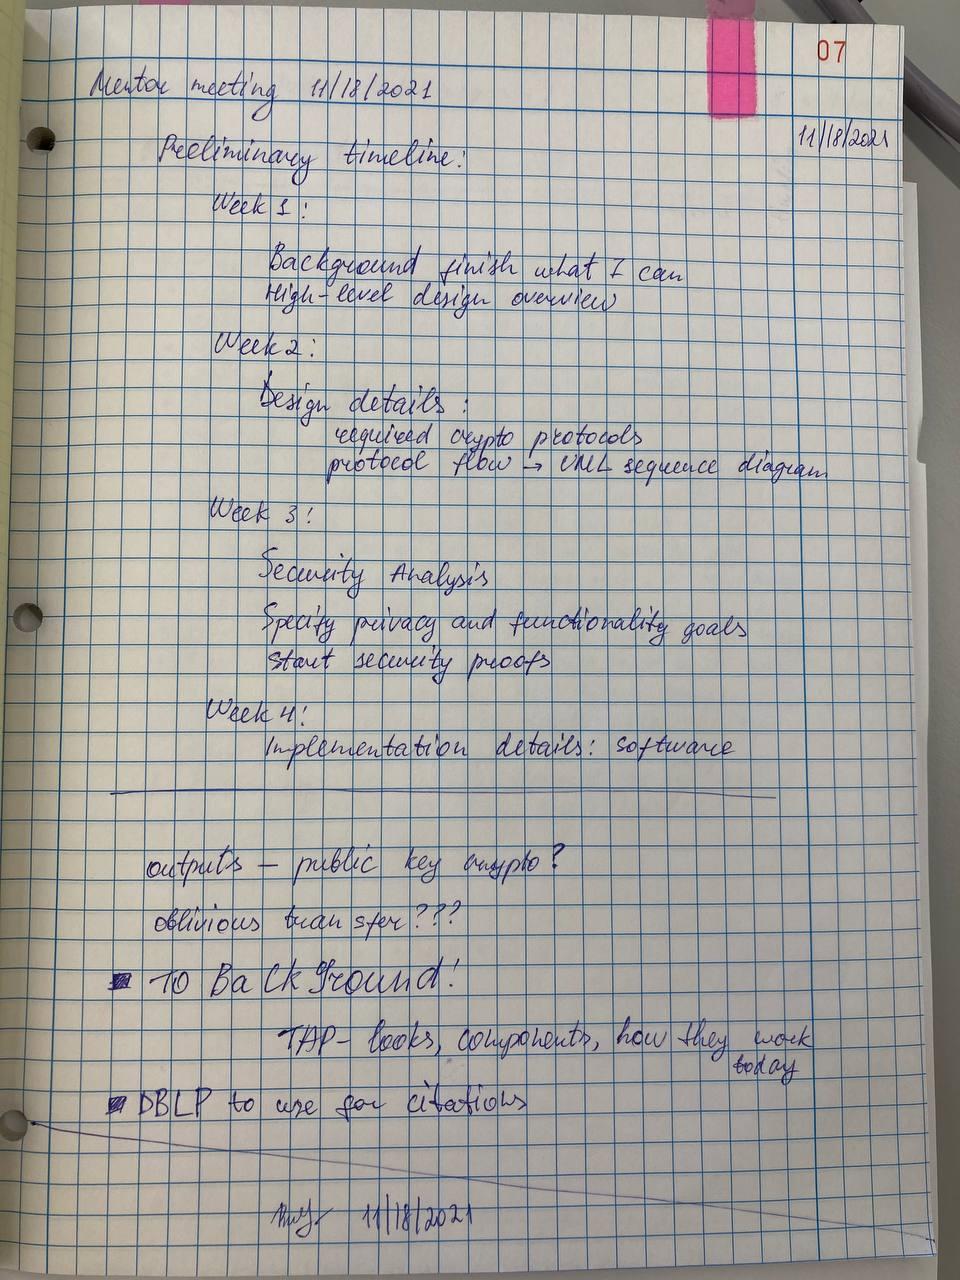 07
Mentor meeting 11/18/2021
11/18/2021
Preliminary timeline:
Week 1:
Background finish what I can
High-level design overview
Week 2:
Design details:
required crypto protocols
protocol flow → UML sequence diagram
Week 3:
Security Analysis
Specify privacy and functionality goals
Start security proofs
Week 4:
Implementation details: software
outputs — public key crypto?
oblivious transfer???
TO BackGround!
TAP - looks, components, how they work
today
DBLP to use for citations
11/18/2021